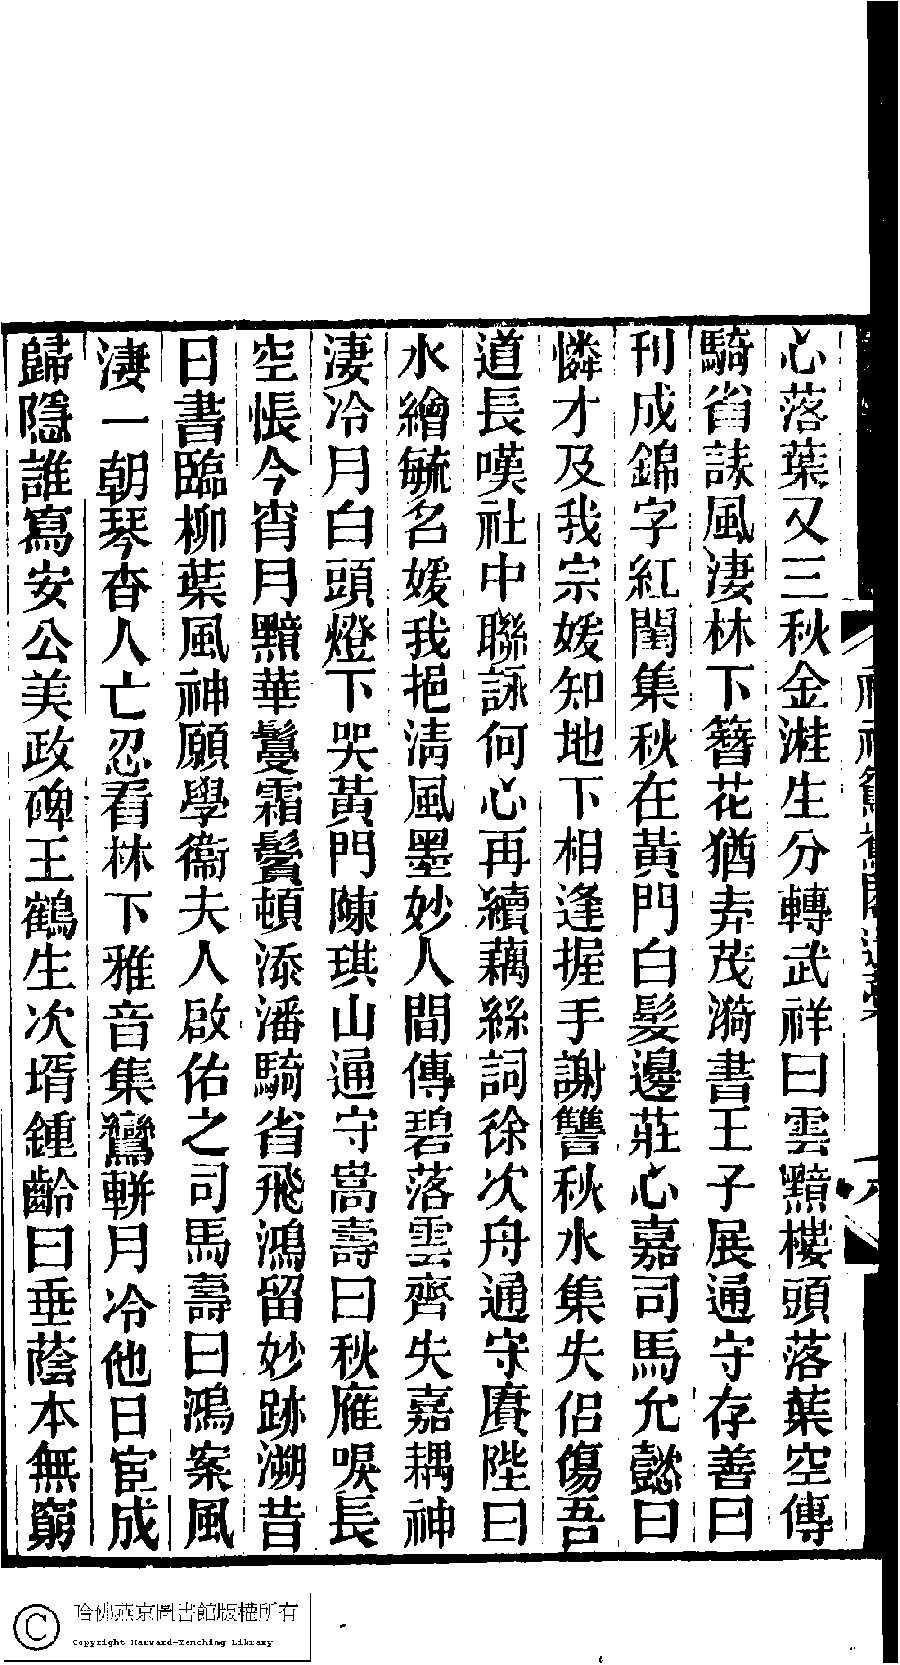 心落葉又三秋金溎生分轉武祥曰雲黯樓頭落葉空傳
騎省誄風淒林下簪花猶弄茂漪書王子展通守存善曰
刊成錦字紅閨集秋在黃門白髮邊莊心嘉司馬允懿曰
憐才及我宗媛知地下相逢握手謝讐秋水集失侶傷吾
道長嘆社中聯詠何心再續藕絲詞徐次舟通守賡陛曰
水繪毓名媛我挹清風墨妙人間傳碧落雲齊失嘉耦神
淒冷月白頭燈下哭黃門陳琪山通守嵩壽曰秋雁唳長
空悵今宵月黯華鬘霜鬢頓添潘騎省飛鴻留妙跡溯昔
日書臨柳葉風神願學衞夫人啟佑之司馬壽曰鴻案風
淒一朝琴杳人亡忍看林下雅音集鸞輧月冷他日宦成
歸隱誰寫安公美政碑王鶴生次壻鍾齡曰垂蔭本無窮
哈佛燕京圖書館版權所有
Copyright Harvard-Yenching Library